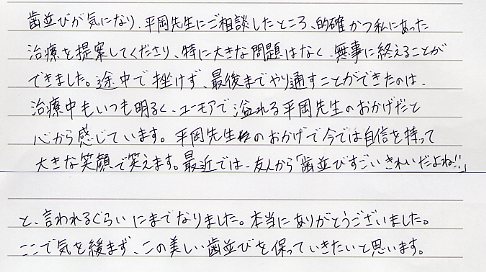 歯並びが気になり、平岡先生にご相談したところ、的確かつ私にあった
治療を提案してくださり、特に大きな問題はなく、無事に終えることが
できました。途中で挫けず、最後までやり通すことができたのは、
治療中もいつも明るく、ユーモアで溢れる平岡先生のおかげだと
心から感じています。平岡先生のおかげで今では自信を持って
大きな笑顔で笑えます。最近では、友人から「歯並びすごいきれいだよね!!」
と、言われるぐらいにまでなりました。本当にありがとうございました。
ここで気を緩まず、この美しい歯並びを保っていきたいと思います。